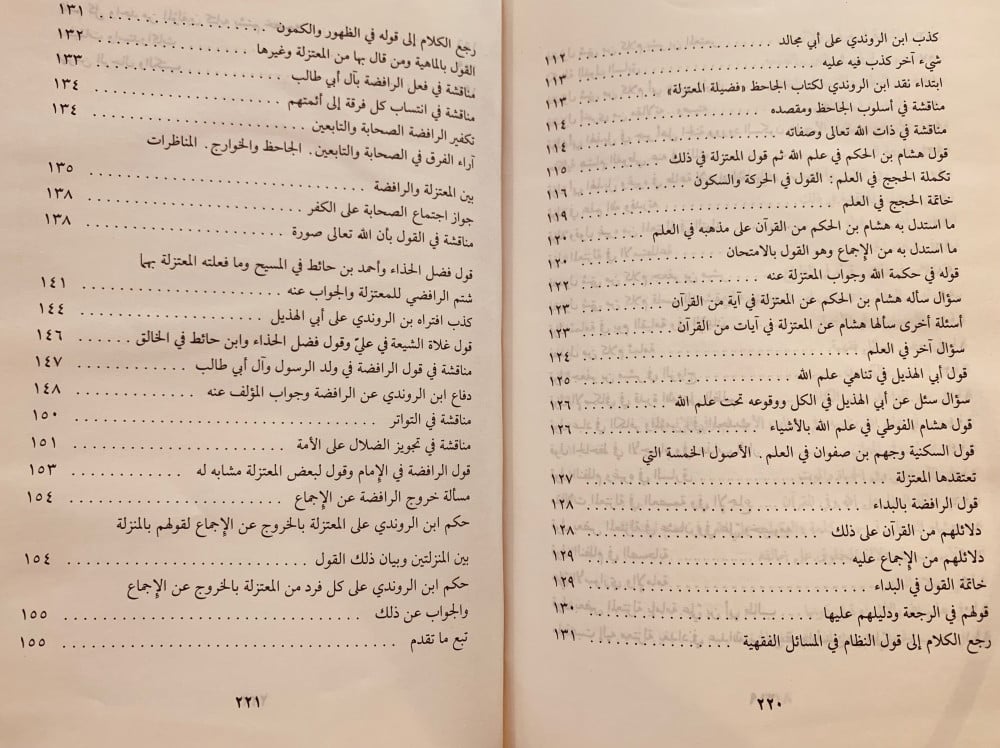 كذب ابن الروندي على أبي مجالد . . . . . . . . . . . . ١١٢
شيء آخر كذب فيه عليه . . . . . . . . . . . . ١١٣
ابتداء نقد ابن الروندي لكتاب الجاحظ «فضيلة المعتزلة» . . . . . . ١١٣
مناقشة في أسلوب الجاحظ ومقصده . . . . . . . . . . . . ١١٤
مناقشة في ذات الله تعالى وصفاته . . . . . . . . . . . . ١١٤
قول هشام بن الحكم في علم الله ثم قول المعتزلة في ذلك . . . . . . ١١٥
تكملة الحجج في العلم: القول في الحركة والسكون . . . . . . ١١٦
خاتمة الحجج في العلم . . . . . . . . . . . . ١١٩
ما استدل به هشام بن الحكم من القرآن على مذهبه في العلم . . . . ١٢٠
ما استدل به من الإجماع وهو القول بالامتحان . . . . . . ١٢٠
قوله في حكمة الله وجواب المعتزلة عنه . . . . . . . . . ١٢٢
سؤال سأله هشام بن الحكم عن المعتزلة في آية من القرآن . . . . . . ١٢٣
أسئلة أخرى سألها هشام عن المعتزلة في آيات من القرآن . . . . . . ١٢٣
سؤال آخر في العلم . . . . . . . . . . . . ١٢٤
قول أبي الهذيل في تناهي علم الله . . . . . . . . . . . . ١٢٥
سؤال سئل عن أبي الهذيل في الكل ووقوعه تحت علم الله . . . . . . ١٢٦
قول هشام الفوطي في علم الله بالأشياء . . . . . . . . . ١٢٦
قول السكنية وجهم بن صفوان في العلم.. الأصول الخمسة التي
تعتقدها المعتزلة . . . . . . . . . . . . ١٢٧
قول الرافضة بالبداء . . . . . . . . . . . . ١٢٨
دلائلهم من القرآن على ذلك . . . . . . . . . . . . ١٢٨
دلائلهم من الإجماع عليه . . . . . . . . . . . . ١٢٩
خاتمة القول في البداء . . . . . . . . . . . . ١٢٩
قولهم في الرجعة ودليلهم عليها . . . . . . . . . . . . ١٣٠
رجع الكلام إلى قول النظام في المسائل الفقهية . . . . . . ١٣١
٢٢٠
رجع الكلام إلى قوله في الظهور والكمون . . . . . . . . . ١٣١
القول بالماهية ومن قال بها من المعتزلة وغيرها . . . . . . ١٣٢
مناقشة في فعل الرافضة بآل أبي طالب . . . . . . . . . ١٣٣
مناقشة في انتساب كل فرقة إلى أئمتهم . . . . . . . . . ١٣٤
تكفير الرافضة الصحابة والتابعين . . . . . . . . . ١٣٤
آراء الفرق في الصحابة والتابعين. الجاحظ والخوارج. المناظرات
بين المعتزلة والرافضة . . . . . . . . . . . . ١٣٥
جواز اجتماع الصحابة على الكفر . . . . . . . . . ١٣٨
مناقشة في القول بأن الله تعالى صورة . . . . . . . . . ١٣٨
قول فضل الحذاء وأحمد بن حائط في المسيح وما فعلته المعتزلة بهما
شتم الرافضي للمعتزلة والجواب عنه . . . . . . . . . ١٤١
كذب افتراه بن الروندي على أبي الهذيل . . . . . . . . . ١٤٤
قول غلاة الشيعة في عليّ وقول فضل الحذاء وابن حائط في الخالق . . . ١٤٦
مناقشة في قول الرافضة في ولد الرسول وآل أبي طالب . . . . . . ١٤٧
دفاع ابن الروندي عن الرافضة وجواب المؤلف عنه . . . . . . ١٤٨
مناقشة في التواتر . . . . . . . . . . . . ١٥٠
مناقشة في تجويز الضلال على الأمة . . . . . . . . . ١٥١
قول الرافضة في الإمام وقول لبعض المعتزلة مشابه له . . . . . . ١٥٣
مسألة خروج الرافضة عن الإجماع . . . . . . . . . ١٥٤
حكم ابن الروندي على المعتزلة بالخروج عن الإجماع لقولهم بالمنزلة
بين المنزلتين وبيان ذلك القول . . . . . . . . . ١٥٤
حكم ابن الروندي على كل فرد من المعتزلة بالخروج عن الإجماع
والجواب عن ذلك . . . . . . . . . . . . ١٥٥
تبع ما تقدم . . . . . . . . . . . . ١٥٥
٢٢١